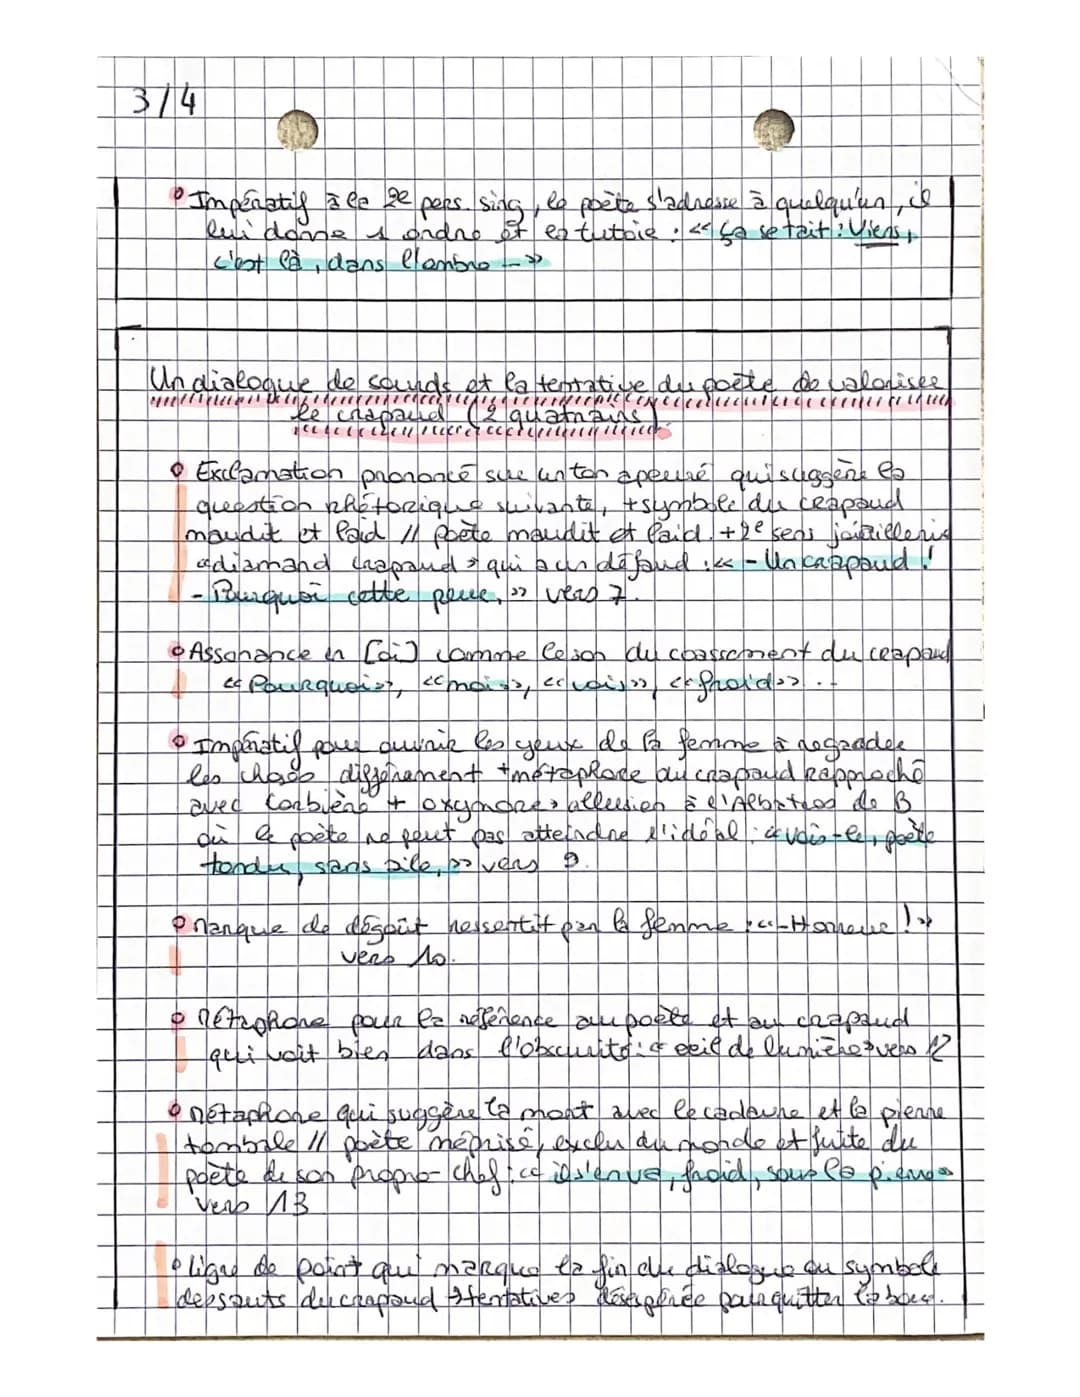 3/4
Impératif à la 2e pers. sing, le poète s'adresse à quelqu'un, il
lui donne 1 ordre et le tutoie : << ça se tait : Viens,
c'est là, dans l'ombre ... >>
Un dialogue de sourds et la tentative du poète de valoriser
le crapaud (2 quatrains)
Exclamation prononcé sur un ton apeuré qui suggère la
question rhétorique suivante, + symbole du crapaud
maudit et laid // poète maudit et laid. + 2e sens joaillerie
"diamand crapaud" qui a un défaud : << - Un crapaud !
- Pourquoi cette peur, >> vers 7.
Assonance en [oi] comme le son du coassement du crapaud
<< Pourquoi >>, << moi >>, << vois >>, << froid >> ...
Impératif pour ouvrir les yeux de la femme à regarder
les choses différement + métaphore du crapaud rapproché
avec Corbière + oxymore, allusion à l'Albatros de B
où le poète ne peut pas atteindre l'idéal : << vois-le, poète
tondu, sans aile, >> vers 9.
Marque de dégoût ressentit par la femme : << - Horreur ! >>
vers 10.
Métaphore pour la référence au poète et au crapaud
qui voit bien dans l'obscurité : << oeil de lumière >> vers 12
Métaphore qui suggère la mort avec le cadavre et la pierre
tombale // poète méprisé, exclu du monde et fuite du
poète de son propre chef : << il s'en va, froid, sous la pierre >>
vers 13
ligne de point qui marque la fin du dialogue ou symbole
des sauts du crapaud → tentatives désespérée pour quitter la boue.